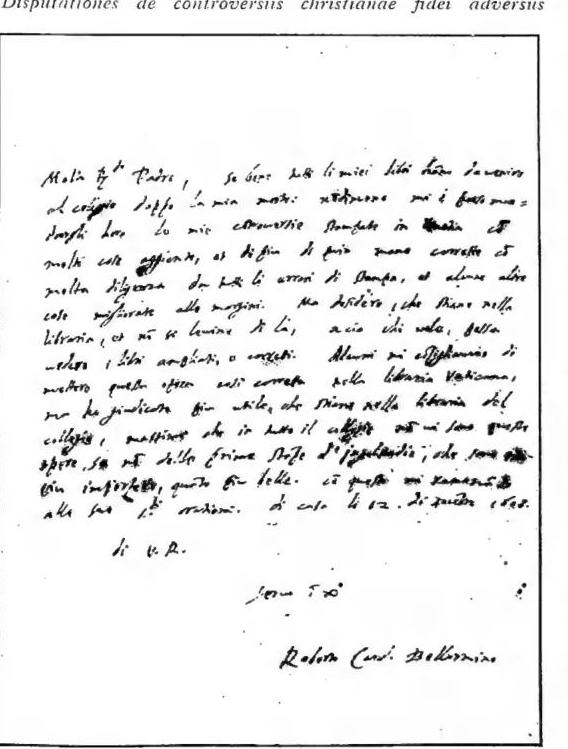 Disputationes de controversiis christianae fidei adversus
Molto R.do Padre, se bene tutti li miei libri hãno da venire
al collegio doppo la mia morte: nõdimeno mi è parso man=
dargli hora le mie controversie stampate in Venetia cõ
molte cose aggionte, et di più di mia mano corrette cõ
molta diligenza da tutti li errori di stampa, et alcune altre
cose migliorate alle margini. Ma desidero, che stiano nella
libraria, et nõ si levino di là, acio chi vole, possa
vedere i libri ampliati, o corretti. Alcuni mi cõsigliavano di
mettere questa opera così corretta nella libraria Vaticana,
ma ho giudicato più utile, che stiano nella libraria del
collegio, massime che in tutto il collegio nõ vi sono queste
opere, se nõ delle prime stãpe d'Ingolstadio, che sono
più imperfette, quãto più belle. cõ questo mi
alle sue orationi. di casa li 12. di
di V. R.
servo ĩ Xº
Roberto Card. Bellarmino